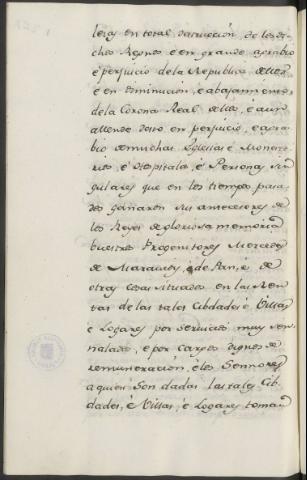 leray en total destruccion, de los di-
chos Reynos, é en grande agrabio
é perjuicio de la Republica dellos
é en diminucion, é abajamiento
de la Corona Real dellos, é aun
allende desto en perjuicio, é agra-
bio de muchas Iglesias é Monas-
terios, é Ospitales, é Personas sin-
gulares que en los tiempos pasa-
dos ganaron sus antecesores de
los Reyes de gloriosa memoria
buestros Progenitores Mercedes
de Maravedis, é de Pan, é de
otras cosas situadas en las Ren-
tas de las tales Cibdades é Villas
é Logares por servicios muy sen-
nalados, é por cargos dignos de
remuneracion, é los Sennores
a quien son dadas las tales Cib-
dades, é Villas, é Logares toman